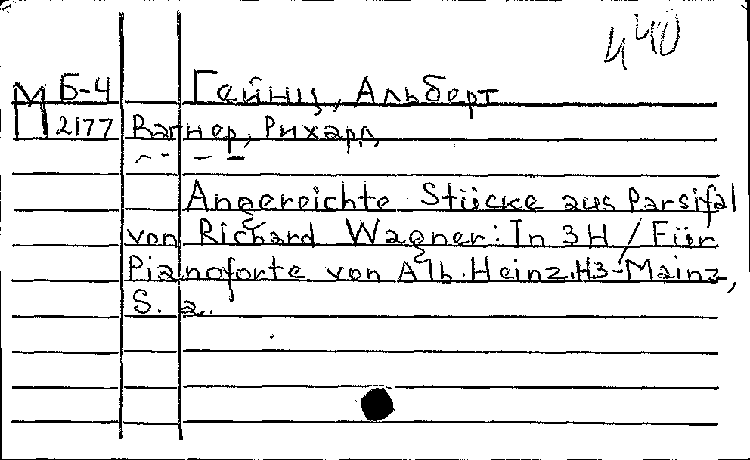 440
М Б-4 Гейнц, Альберт
2177 Вагнер, Рихард
Angereichte Stücke aus Parsifal
von Richard Wagner: In 3H / Für
Pianoforte von Alb. Heinz. H3-Mainz,
S. a.